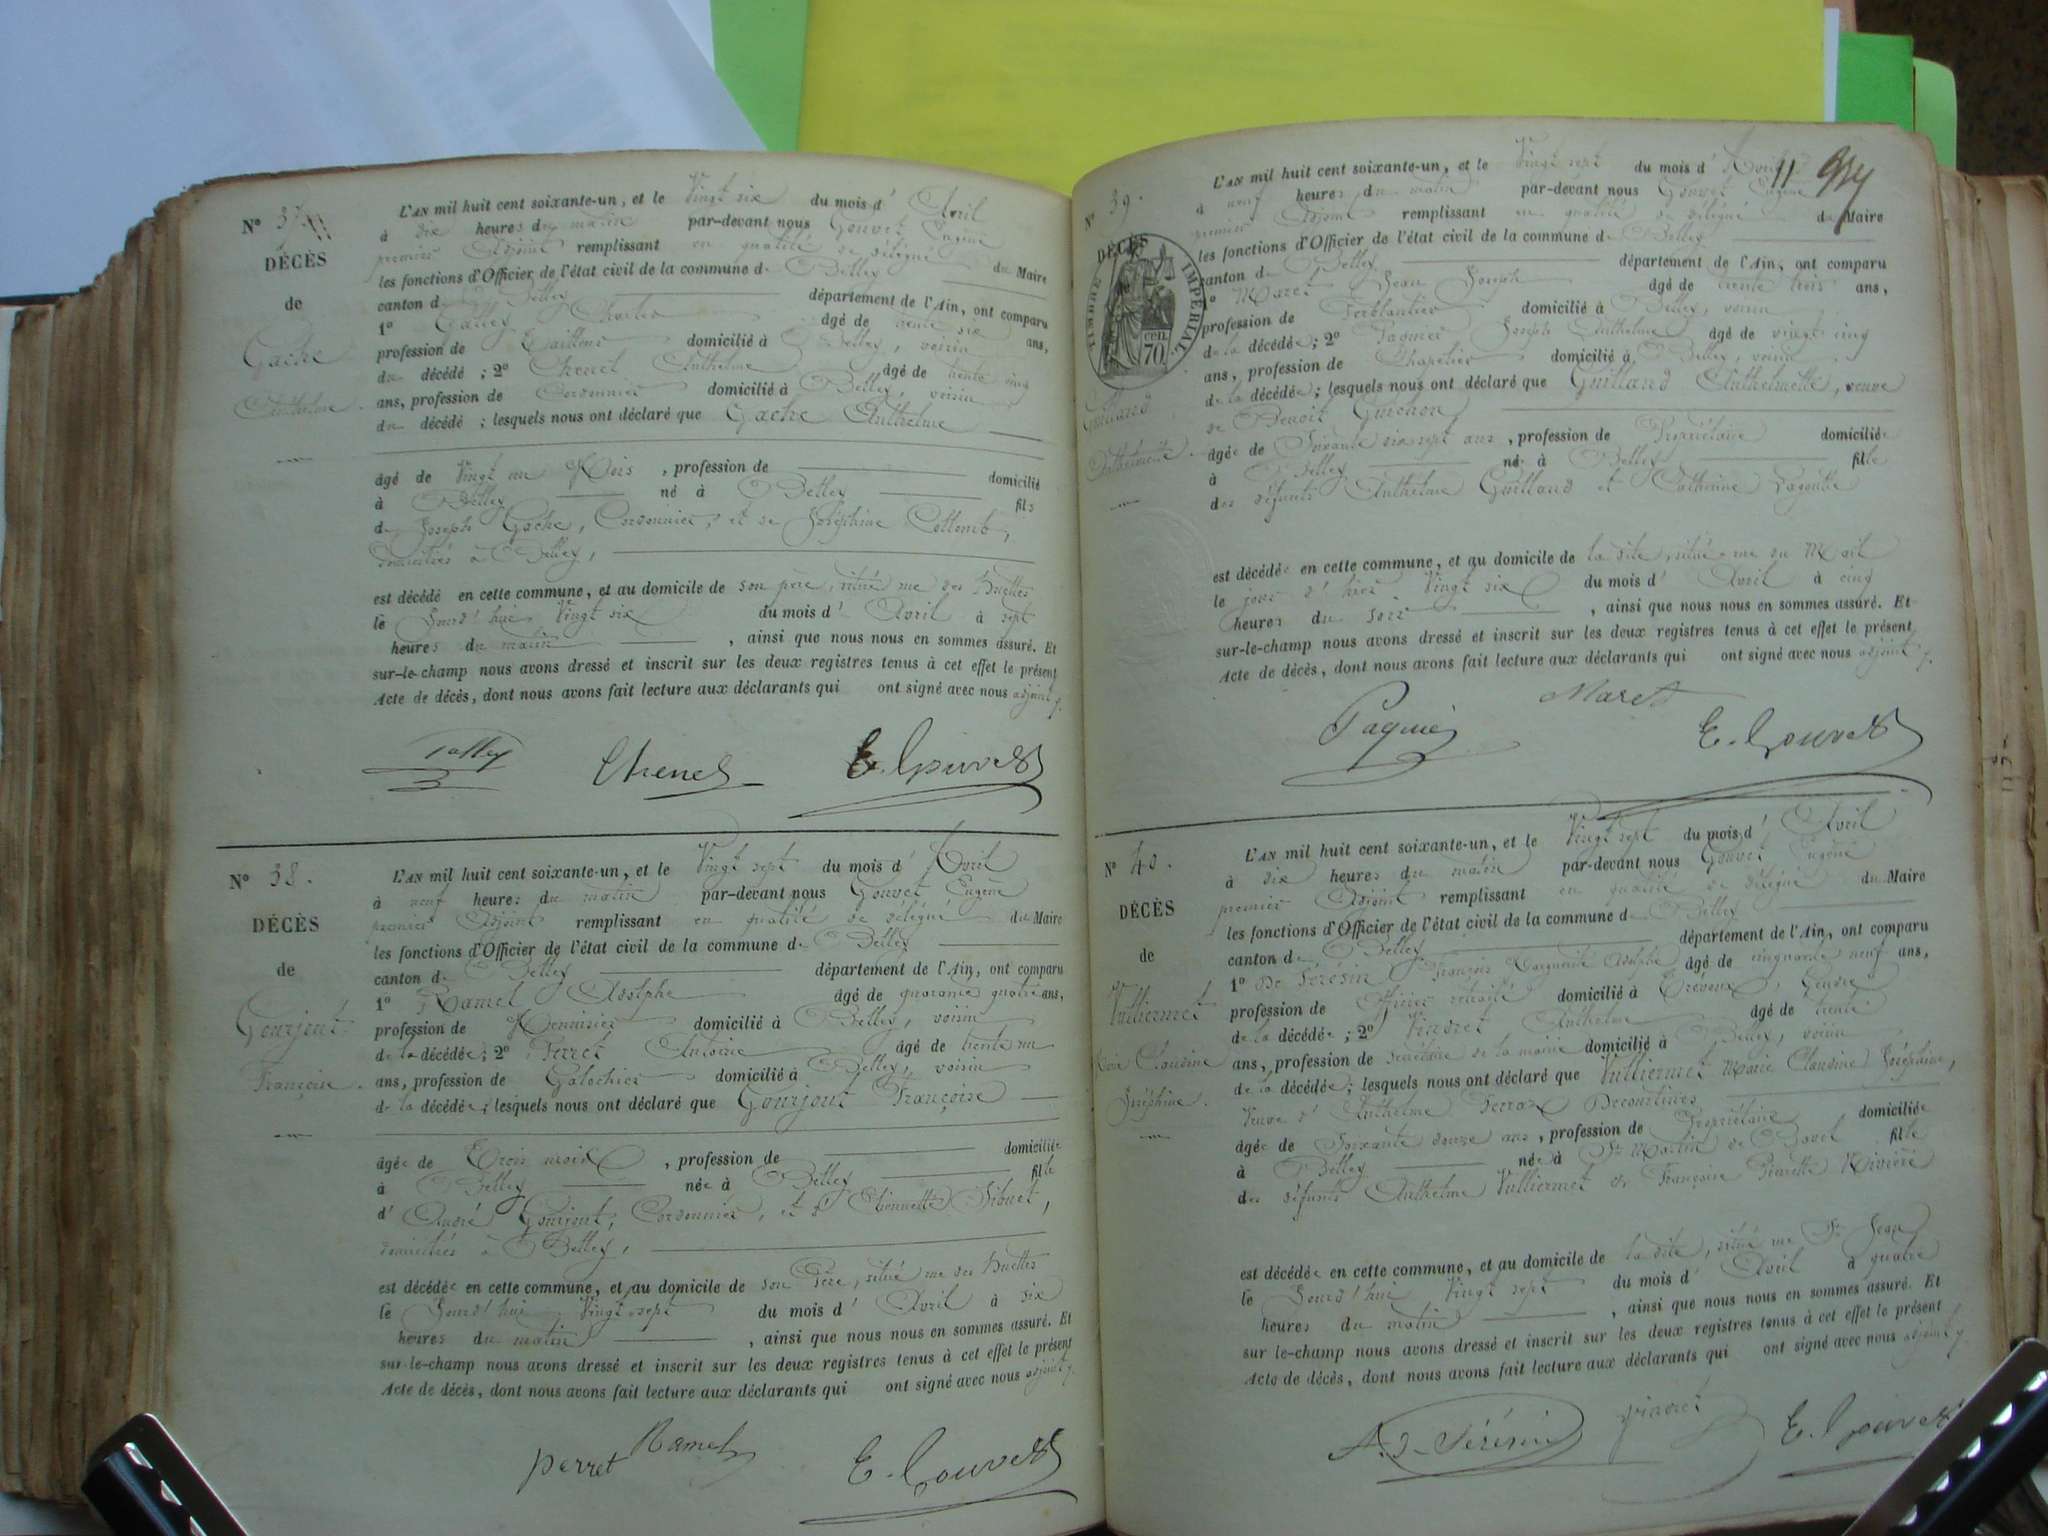 N° 37
DÉCÈS
de
Gache
Anthelme.
L'AN mil huit cent soixante-un, et le Vingt six du mois d'Avril
à dix heures du matin par-devant nous Gouvet Eugène
premier Adjoint remplissant en qualité de délégué du Maire
les fonctions d'Officier de l'état civil de la commune de Belley
canton de Belley département de l'Ain, ont comparu
1° Talley Charles âgé de trente six ans,
profession de Tailleur domicilié à Belley, voisin
du décédé ; 2° Chenel Anthelme âgé de trente cinq
ans, profession de Cordonnier domicilié à Belley, voisin
du décédé ; lesquels nous ont déclaré que Gache Anthelme
âgé de Vingt un Mois, profession de domicilié
à Belley né à Belley fils
de Joseph Gache, Cordonnier, et de Joséphine Collomb,
domiciliés à Belley,
est décédé en cette commune, et au domicile de son père, situé rue des Huettes
le Jourd'hui Vingt six du mois d'Avril à sept
heures du matin, ainsi que nous nous en sommes assuré. Et
sur-le-champ nous avons dressé et inscrit sur les deux registres tenus à cet effet le présent
Acte de décès, dont nous avons fait lecture aux déclarants qui ont signé avec nous adjoint
Talley Chenel E. Gouvet
N° 38.
DÉCÈS
de
Gourjout
Françoise.
L'AN mil huit cent soixante-un, et le Vingt sept du mois d'Avril
à neuf heures du matin par-devant nous Gouvet Eugène
premier Adjoint remplissant en qualité de délégué du Maire
les fonctions d'Officier de l'état civil de la commune de Belley
canton de Belley département de l'Ain, ont comparu
1° Ramel Adolphe âgé de quarante quatre ans,
profession de Menuisier domicilié à Belley, voisin
de la décédée; 2° Perret Antoine âgé de trente un
ans, profession de Galochier domicilié à Belley, voisin
de la décédée; lesquels nous ont déclaré que Gourjout Françoise
âgée de Trois mois, profession de domiciliée
à Belley née à Belley fille
d'André Gourjout, Cordonnier, et d'Etiennette Sibuet,
domiciliés à Belley,
est décédée en cette commune, et au domicile de son Père, situé rue des Huettes
le Jourd'hui Vingt sept du mois d'Avril à six
heures du matin, ainsi que nous nous en sommes assuré. Et
sur-le-champ nous avons dressé et inscrit sur les deux registres tenus à cet effet le présent
Acte de décès, dont nous avons fait lecture aux déclarants qui ont signé avec nous adjoint
Perret Ramel E. Gouvet
11
N° 39.
DÉCÈS
TIMBRE IMPÉRIAL
70 CEN.
Guilland
Anthelmette.
L'AN mil huit cent soixante-un, et le Vingt sept du mois d'Avril
à neuf heures du matin par-devant nous Gouvet Eugène
premier Adjoint remplissant en qualité de délégué du Maire
les fonctions d'Officier de l'état civil de la commune de Belley
canton de Belley département de l'Ain, ont comparu
1° Maret Jean Joseph âgé de trente trois ans,
profession de Ferblantier domicilié à Belley, voisin
de la décédée; 2° Paquier Joseph Anthelme âgé de vingt cinq
ans, profession de Chapelier domicilié à Belley, voisin
de la décédée; lesquels nous ont déclaré que Guilland Anthelmette, veuve
de Benoit Guichon
âgée de Soixante dix sept ans, profession de Propriétaire domiciliée
à Belley née à Belley fille
des défunts Anthelme Guilland et Catherine
est décédée en cette commune, et au domicile de la dite, situé rue du Mail
le jour d'hier Vingt six du mois d'Avril à cinq
heures du soir, ainsi que nous nous en sommes assuré. Et
sur-le-champ nous avons dressé et inscrit sur les deux registres tenus à cet effet le présent
Acte de décès, dont nous avons fait lecture aux déclarants qui ont signé avec nous adjoint
Paquier Maret E. Gouvet
N° 40.
DÉCÈS
de
Vulliermet
Marie Claudine
Joséphine.
L'AN mil huit cent soixante-un, et le Vingt sept du mois d'Avril
à dix heures du matin par-devant nous Gouvet Eugène
premier Adjoint remplissant en qualité de délégué du Maire
les fonctions d'Officier de l'état civil de la commune de Belley
canton de Belley département de l'Ain, ont comparu
1° De Sérésin François Marguerite Adolphe âgé de cinquante neuf ans,
profession de Officier retraité domicilié à Trévoux, Gendre
de la décédée; 2° Pinoret Anthelme âgé de trente
ans, profession de secrétaire de la mairie domicilié à Belley, voisin
de la décédée; lesquels nous ont déclaré que Vulliermet Marie Claudine Joséphine,
Veuve d'Anthelme Ferraz Decourtines
âgée de Soixante douze ans, profession de Propriétaire domiciliée
à Belley née à St Martin de Bavel fille
des défunts Anthelme Vulliermet et Françoise Pierrette Rivière
est décédée en cette commune, et au domicile de la dite, situé rue St Jean
le Jourd'hui Vingt sept du mois d'Avril à quatre
heures du matin, ainsi que nous nous en sommes assuré. Et
sur-le-champ nous avons dressé et inscrit sur les deux registres tenus à cet effet le présent
Acte de décès, dont nous avons fait lecture aux déclarants qui ont signé avec nous adjoint
A. de Sérésin E. Gouvet